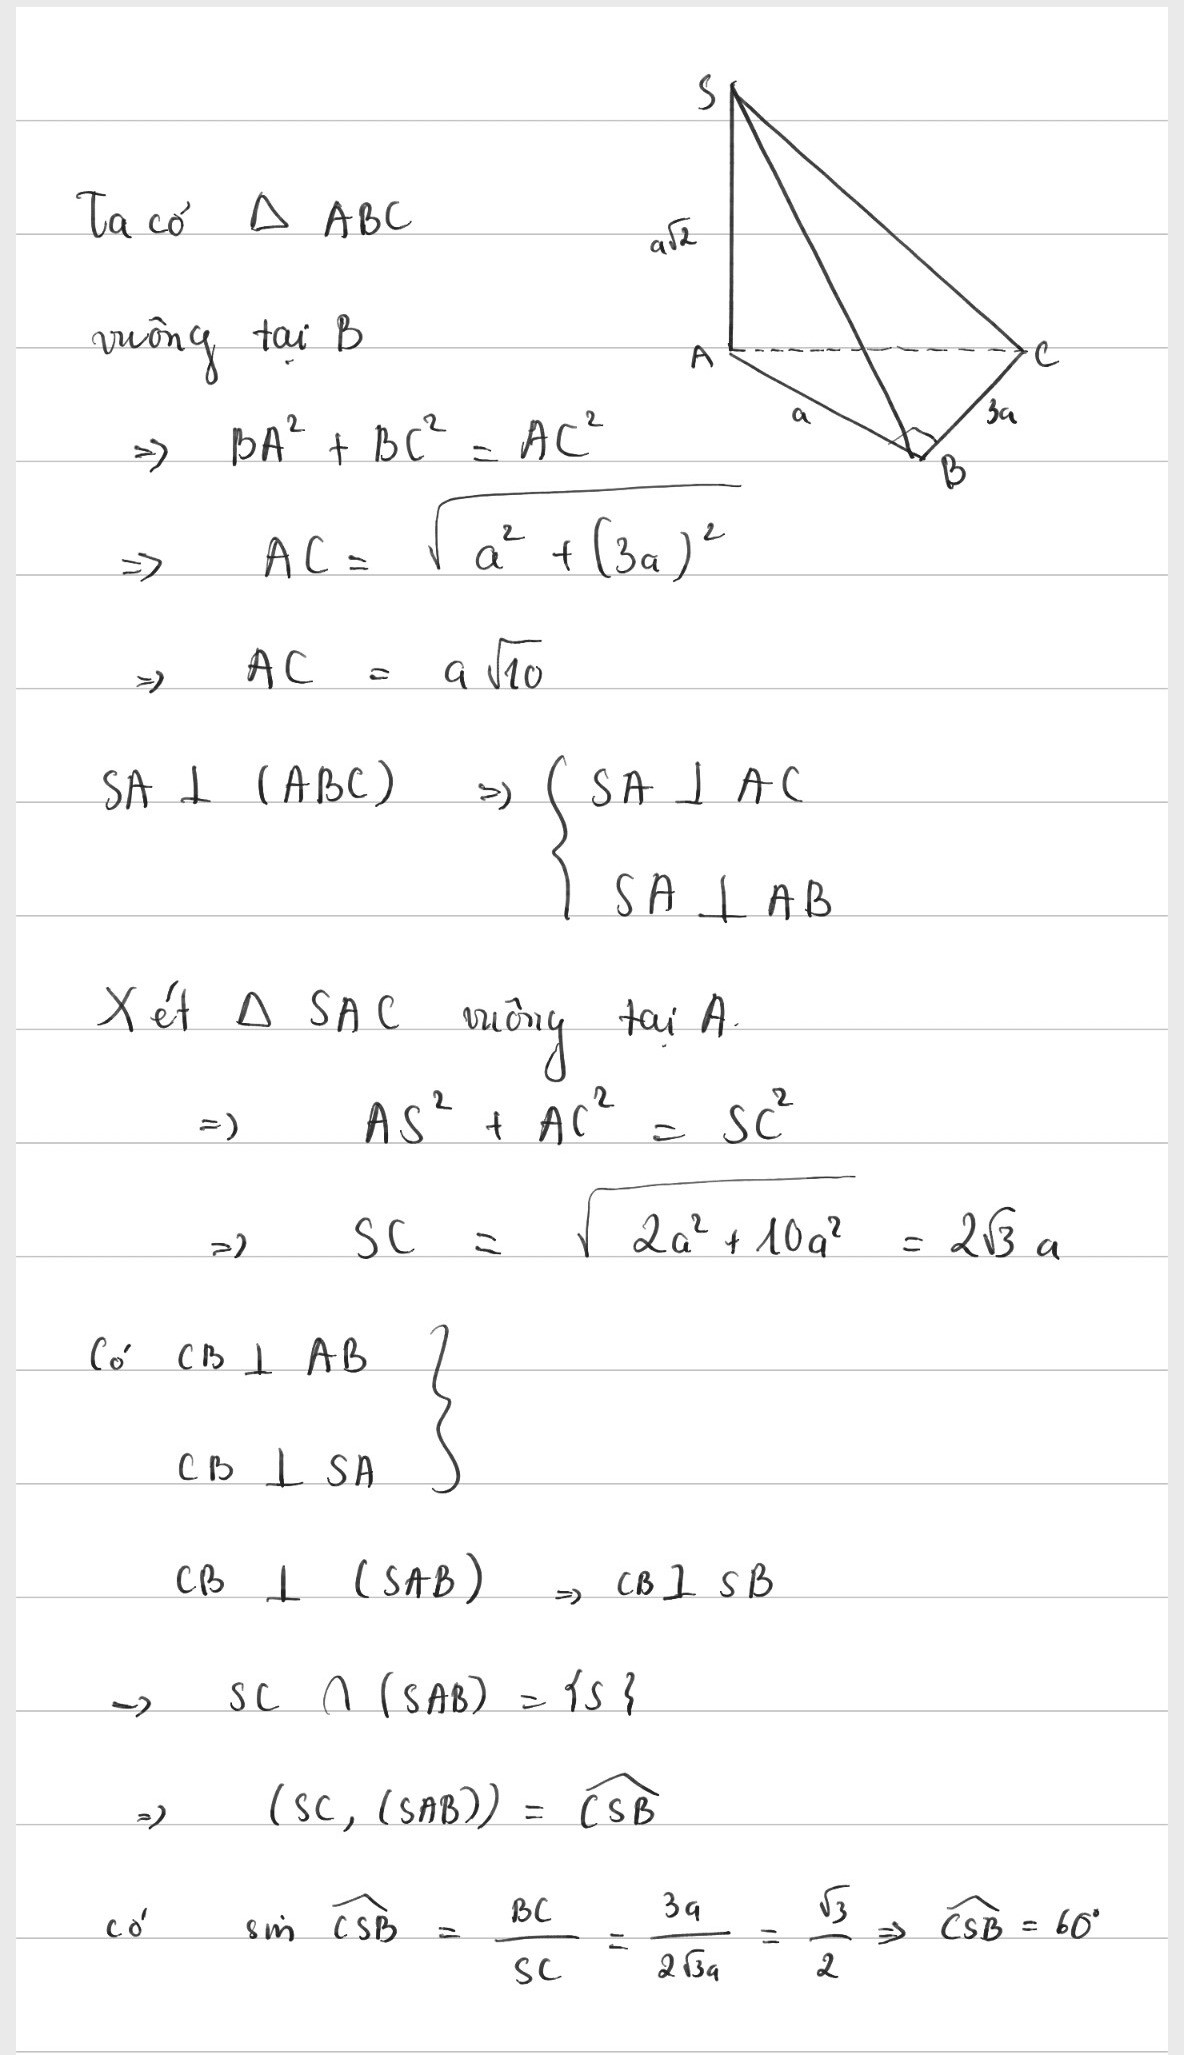 S
Ta có △ ABC
a√2
vuông tại B
A
C
a
3a
B
=> BA² + BC² = AC²
=> AC = √(a² + (3a)²)
=> AC = a√10
SA ⊥ (ABC) => { SA ⊥ AC
SA ⊥ AB
Xét △ SAC vuông tại A.
=> AS² + AC² = SC²
=> SC = √(2a² + 10a²) = 2√3 a
Có CB ⊥ AB }
CB ⊥ SA
CB ⊥ (SAB) => CB ⊥ SB
-> SC ∩ (SAB) = {S}
=> (SC, (SAB)) = \widehat{CSB}
có sin \widehat{CSB} = BC/SC = 3a/2√3a = √3/2 => \widehat{CSB} = 60°